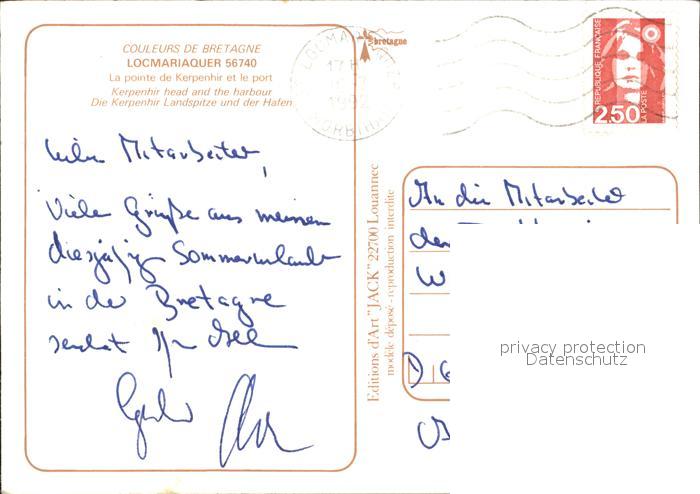 COULEURS DE BRETAGNE
LOCMARIAQUER 56740
La pointe de Kerpenhir et le port
Kerpenhir head and the harbour
Die Kerpenhir Landspitze und der Hafen
bretagne
17 H
MORBIHAN
RÉPUBLIQUE FRANÇAISE
2,50
LA POSTE
Liebe Mitarbeiter,
Viele Grüße aus meinem
diesjährig Sommerurlaub
in der Bretagne
sendet Ihnen allen
Editions d'Art "JACK" 22700 Louannec
modèle déposé - reproduction interdite
An die Mitarbeiter
der
W
D
privacy protection
Datenschutz